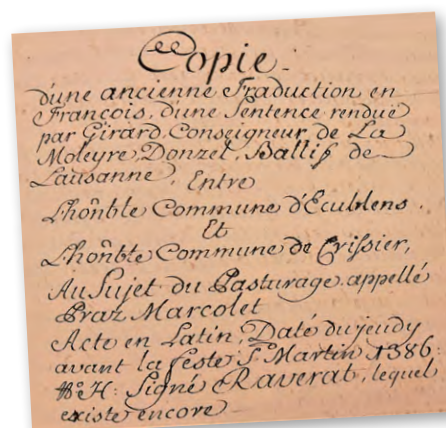 Copie.
d'une ancienne Traduction en
François, d'une Sentence rendue
par Girard, Conseigneur, de La
Moleyre, Donzel, Ballif de
Lausanne, Entre
L'honble Commune d'Ecublens,
Et
L'honble Commune de Crissier,
Au Sujet du Pasturage, appellé
Praz Marcolet
Acte en Latin, Daté du jeudy
avant la feste St Martin 1386.
Signé Raverat, lequel
existe encore